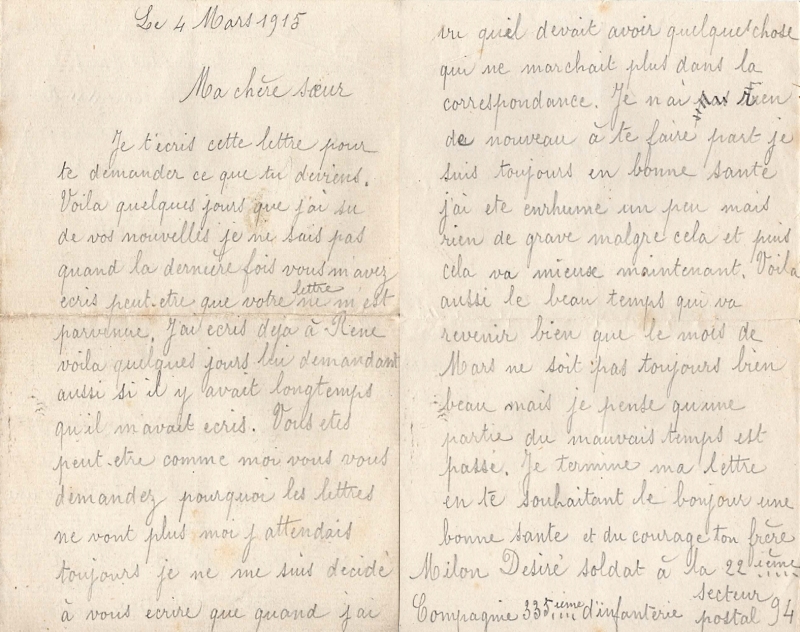 Le 4 Mars 1915
Ma chère sœur
Je t'écris cette lettre pour
te demander ce que tu deviens.
Voila quelques jours que j'ai su
de vos nouvelles je ne sais pas
quand la derniere fois vous m'avez
ecris peut-etre que votre lettre ne m'est
parvenue. J'ai ecris deja à Rene
voila quelques jours lui demandant
aussi si il y avait longtemps
qu'il m'avait ecris. Vous etes
peut-etre comme moi vous vous
demandez pourquoi les lettres
ne vont plus moi j'attendais
toujours je ne me suis décidé
à vous ecrire que quand j'ai
vu quiel devait avoir quelque chose
qui ne marchait plus dans la
correspondance. Je n'ai pas rien
de nouveau à te faire part je
suis toujours en bonne santé
j'ai ete enrhume un peu mais
rien de grave malgre cela et puis
cela va mieux maintenant. Voila
aussi le beau temps qui va
revenir bien que le mois de
Mars ne soit pas toujours bien
beau mais je pense qu'une
partie du mauvais temps est
passé. Je termine ma lettre
en te souhaitant le bonjour une
bonne sante et du courage ton frère
Milon Desiré soldat à la 22 ième
Compagnie 335 ieme d'infanterie secteur postal 94